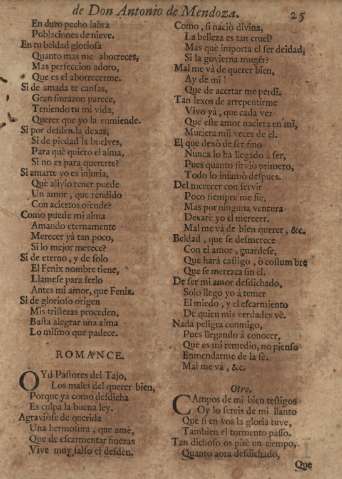 de Don Antonio de Mendoza. 25
En duro pecho labra
Poblaciones de nieve.
En tu beldad gloriosa
Quanto mas me aborreces,
Mas perfeccion adoro,
Que es el aborrecerme.
Si de amada te cansas,
Gran sinrazon parece,
Teniendo tu mi vida,
Querer que yo la enmiende.
Si por desden la dexas,
Si de piedad la buelves,
Para què quiero el alma,
Si no es para quererte?
Si amarte yo es injuria,
Què alivio tener puede
Un amor, que rendido
Con aciertos ofende?
Como puede mi alma
Amando eternamente
Merecer yà tan poco,
Si lo mejor merece?
Si de eterno, y de solo
El Fenix nombre tiene,
Llamese para serlo
Antes mi amor, que Fenix.
Si de glorioso origen
Mis tristezas proceden,
Basta alegrar una alma
Lo mismo que padece.
ROMANCE.
OYd Pastores del Tajo,
Los males del querer bien,
Porque yà como desdicha
Es culpa la buena ley.
Agravióse de querida
Una hermosura, que amè,
Que de escarmentar finezas
Vive muy falso el desden.
Como, si naciò divina,
La belleza es tan cruel?
Mas què importa el ser deidad,
Si la govierna muger?
Mal me và de querer bien,
Ay de mi!
Que de acertar me perdì.
Tan lexos de arrepentirme
Vivo yà, que cada vez
Que este amor naciera en mi,
Muriera mil veces de èl.
El que dexò de ser fino
Nunca lo ha llegado à ser,
Pues quanto sirviò primero,
Todo lo infamò despues.
Del merecer con servir
Poco siempre me fiè,
Mas por ninguna ventura
Dexarè yo el merecer.
Mal me và de bien querer, &c.
Beldad, que se desmerece
Con el amor, guardese,
Que harà castigo, ò costumbre
Que se merezca sin èl.
De ser mi amor desdichado,
Solo llego yo à temer
El miedo, y el escarmiento
De quien mis verdades vè.
Nada peligra conmigo,
Pues llegando à conocer,
Que es mi remedio, no pienso
Enmendarme de la fè.
Mal me và, &c.
Otro.
CAmpos de mi bien testigos
Oy lo sereis de mi llanto
Què si en vos la gloria tuve,
Tambien el tormento passo.
Tan dichoso os pisè un tiempo,
Quanto aora desdichado,
Que